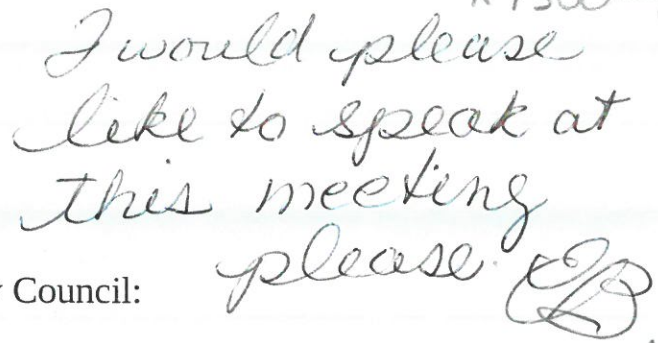 I would please
like to speak at
this meeting
please.
Council: